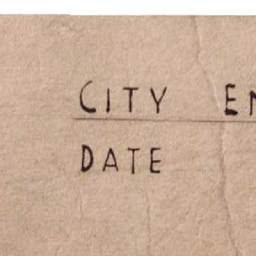 CITY
DATE